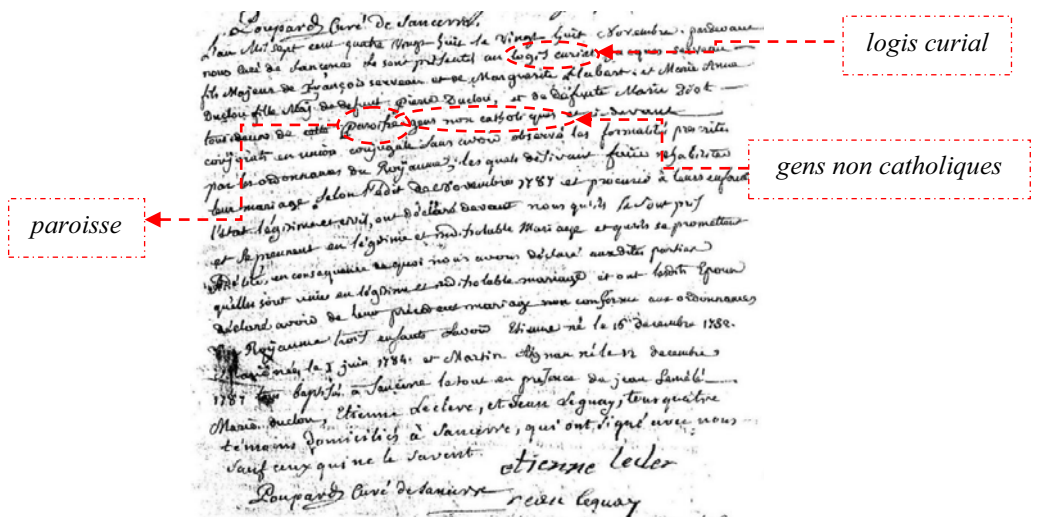 Poupard Curé de Sancerre.
L'an Mil sept cent quatre Vingt huit le Vingt huit Novembre. pardevant
nous Curé de Sancerre se sont présentés au logis curial jacques serveau
fils Majeur de François serveau et de Marguerite flubert. et Marie Anne
Duclou fille Maj. de defunt pierre Duclou, et de defunte Marie
tous deux de cette paroisse gens non catholiques
conjoints en union conjugale sans avoir observé les formalités prescrites
par les ordonnances du Royaume, les quels désirant faire réhabiliter
leur mariage selon l'édit de Novembre 1787 et procurer à leurs enfans
l'état légitime et civil, ont déclaré devant nous qu'ils se sont pris
et se prennent en légitime et indissoluble Mariage et qu'ils se promettent
fidélité, en consequence de quoi nous avons déclaré auxdites parties
qu'elles sont unies en légitime et indissoluble mariage et ont lesdits Epoux
déclaré avoir de leur précédent mariage non conforme aux ordonnances
du Royaume trois enfants Savoir Etienne né le 16 decembre 1782.
née le 1 juin 1784. et Martin né le 12 decembre
1787 tous baptisés à Sancerre le tout en présence de jean
Marie duclou, Etienne Leclerc, et Jean Leguay, tous quatre
témoins domiciliés à Sancerre, qui ont signé avec nous
sauf ceux qui ne le savent
etienne lecler
Poupard Curé de Sancerre
jean leguay
logis curial
gens non catholiques
paroisse